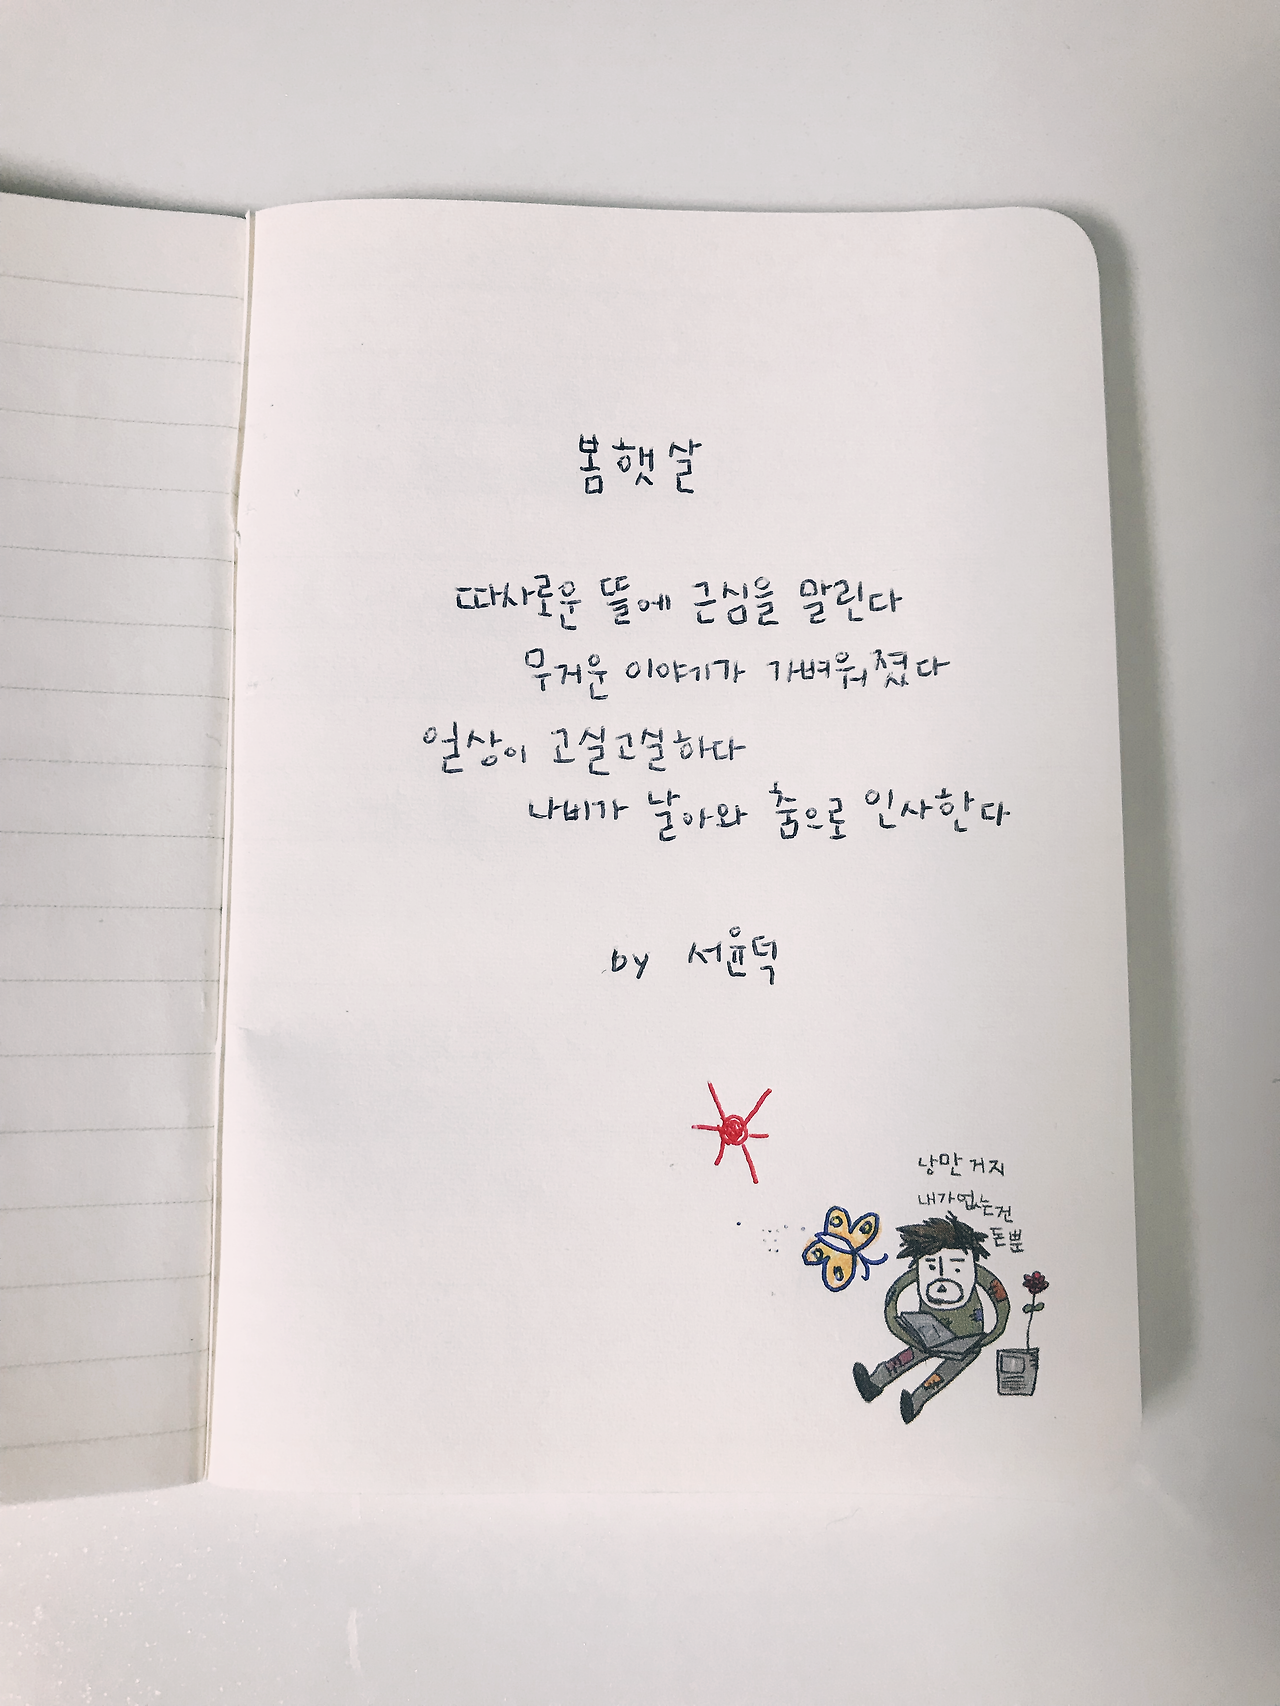 봄햇살
따사로운 뜰에 근심을 말린다
무거운 이야기가 가벼워졌다
일상이 고실고실하다
나비가 날아와 춤으로 인사한다
by 서윤덕
낭만 거지
내가 없는건
돈뿐